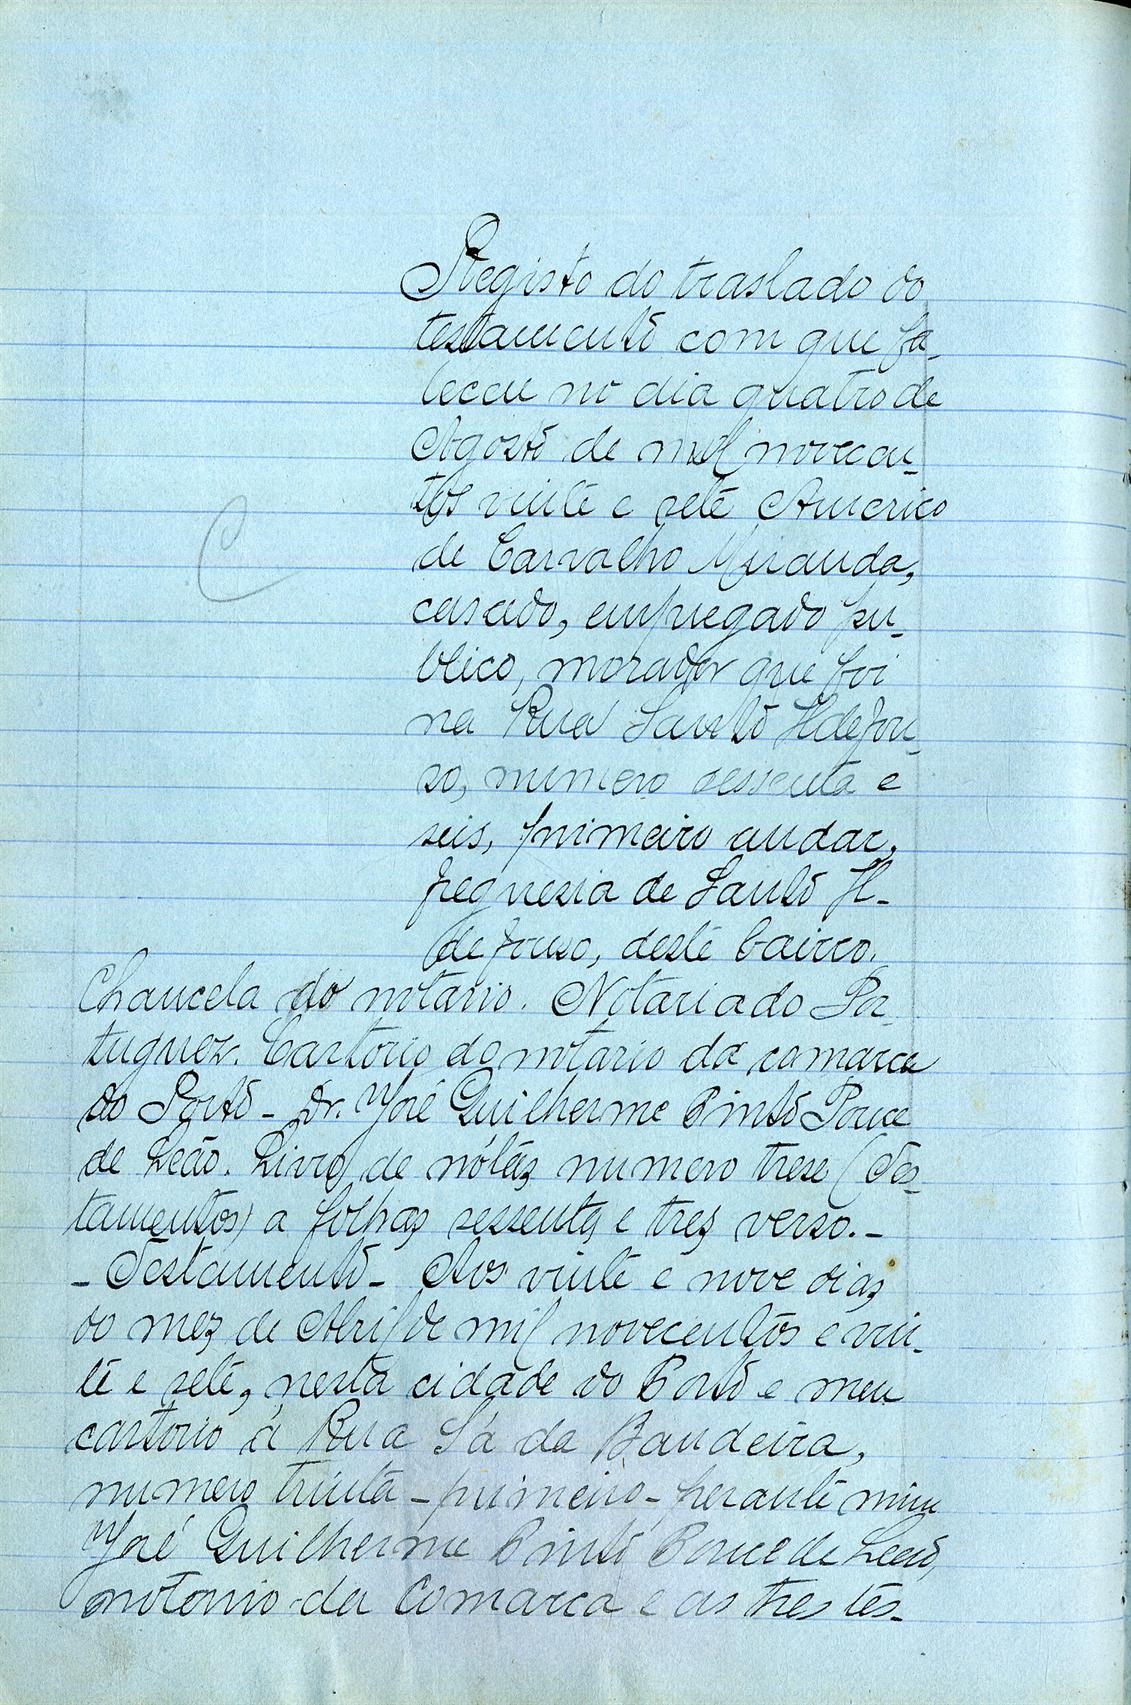 Registo do traslado do
testamento com que fa-
leceu no dia quatro de
Agosto de mil novecen-
tos vinte e sete Americo
de Carvalho Miranda,
casado, empregado pu-
blico, morador que foi
na Rua Santo Ildefon-
so, numero sessenta e
seis, primeiro andar,
freguesia de Santo Il-
defonso, deste bairro.
Chancela do notario. Notariado Por-
tuguez. Cartorio do notario da comarca
do Porto - Dr. José Guilherme Pinto Ponce
de Leão. Livro de nótas numero trese (Tes-
tamentos) a folhas sessenta e trez verso. -
- Testamento - Aos vinte e nove dias
do mez de Abril de mil novecentos e vin-
te e sete, nesta cidade do Porto e meu
cartorio á Rua Sá da Bandeira,
numero trinta - primeiro - perante mim
José Guilherme Pinto Ponce de Leão,
notario da comarca e as tres tes-